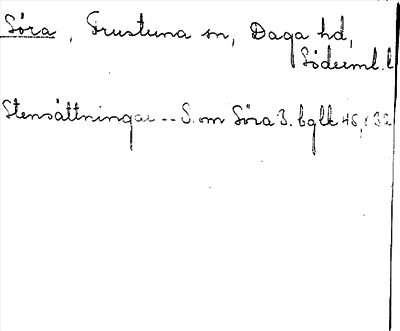 Söra, Frustuna sn, Daga hd,
Söderml. l
Stensättningar -- S. om Söra 3. bglt 46, 132